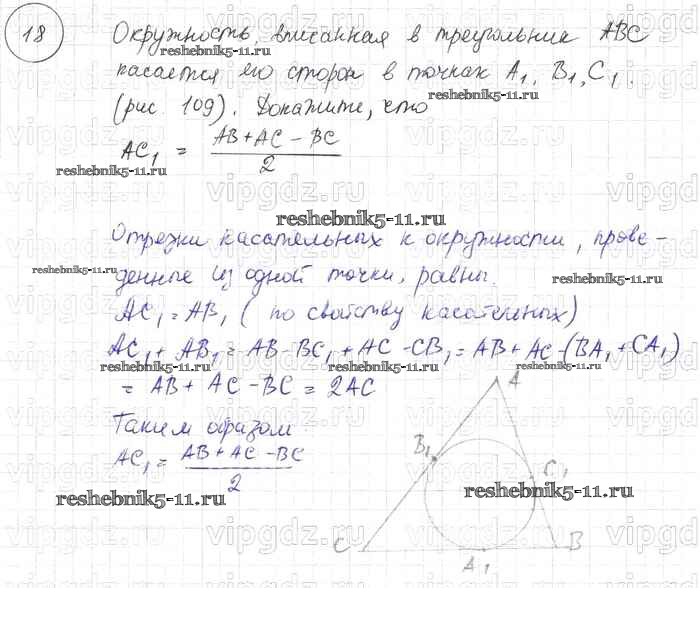 18
Окружность, вписанная в треугольник ABC
касается его сторон в точках A₁, B₁, C₁.
(рис. 109). Докажите, что
AC₁ = (AB + AC − BC)/2
reshebnik5-11.ru
Отрезки касательных к окружности, прове-
денные из одной точки, равны.
AC₁ = AB₁ ( по свойству касательных)
AC₁ + AB₁ = AB − BC₁ + AC − CB₁ = AB + AC − (BA₁ + CA₁)
= AB + AC − BC = 2AC
Таким образом
AC₁ = (AB + AC − BC)/2
reshebnik5-11.ru
A
B₁
C₁
reshebnik5-11.ru
C
A₁
B
vipgdz